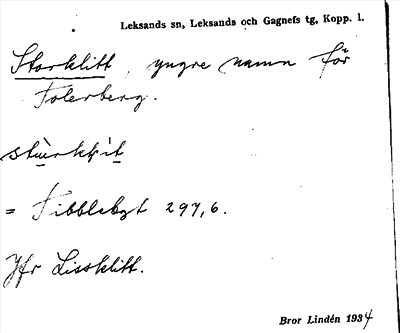 Leksands sn, Leksands och Gagnefs tg, Kopp. l.
Storklitt, yngre namn för
Tolerberg.
= Fibbleberget 297,6.
Jfr Lissklitt.
Bror Lindén 1934